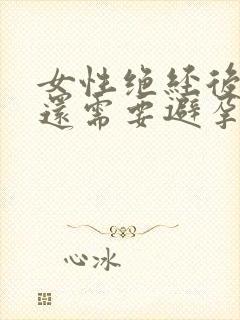 女性绝经後
還需要避孕
心冰